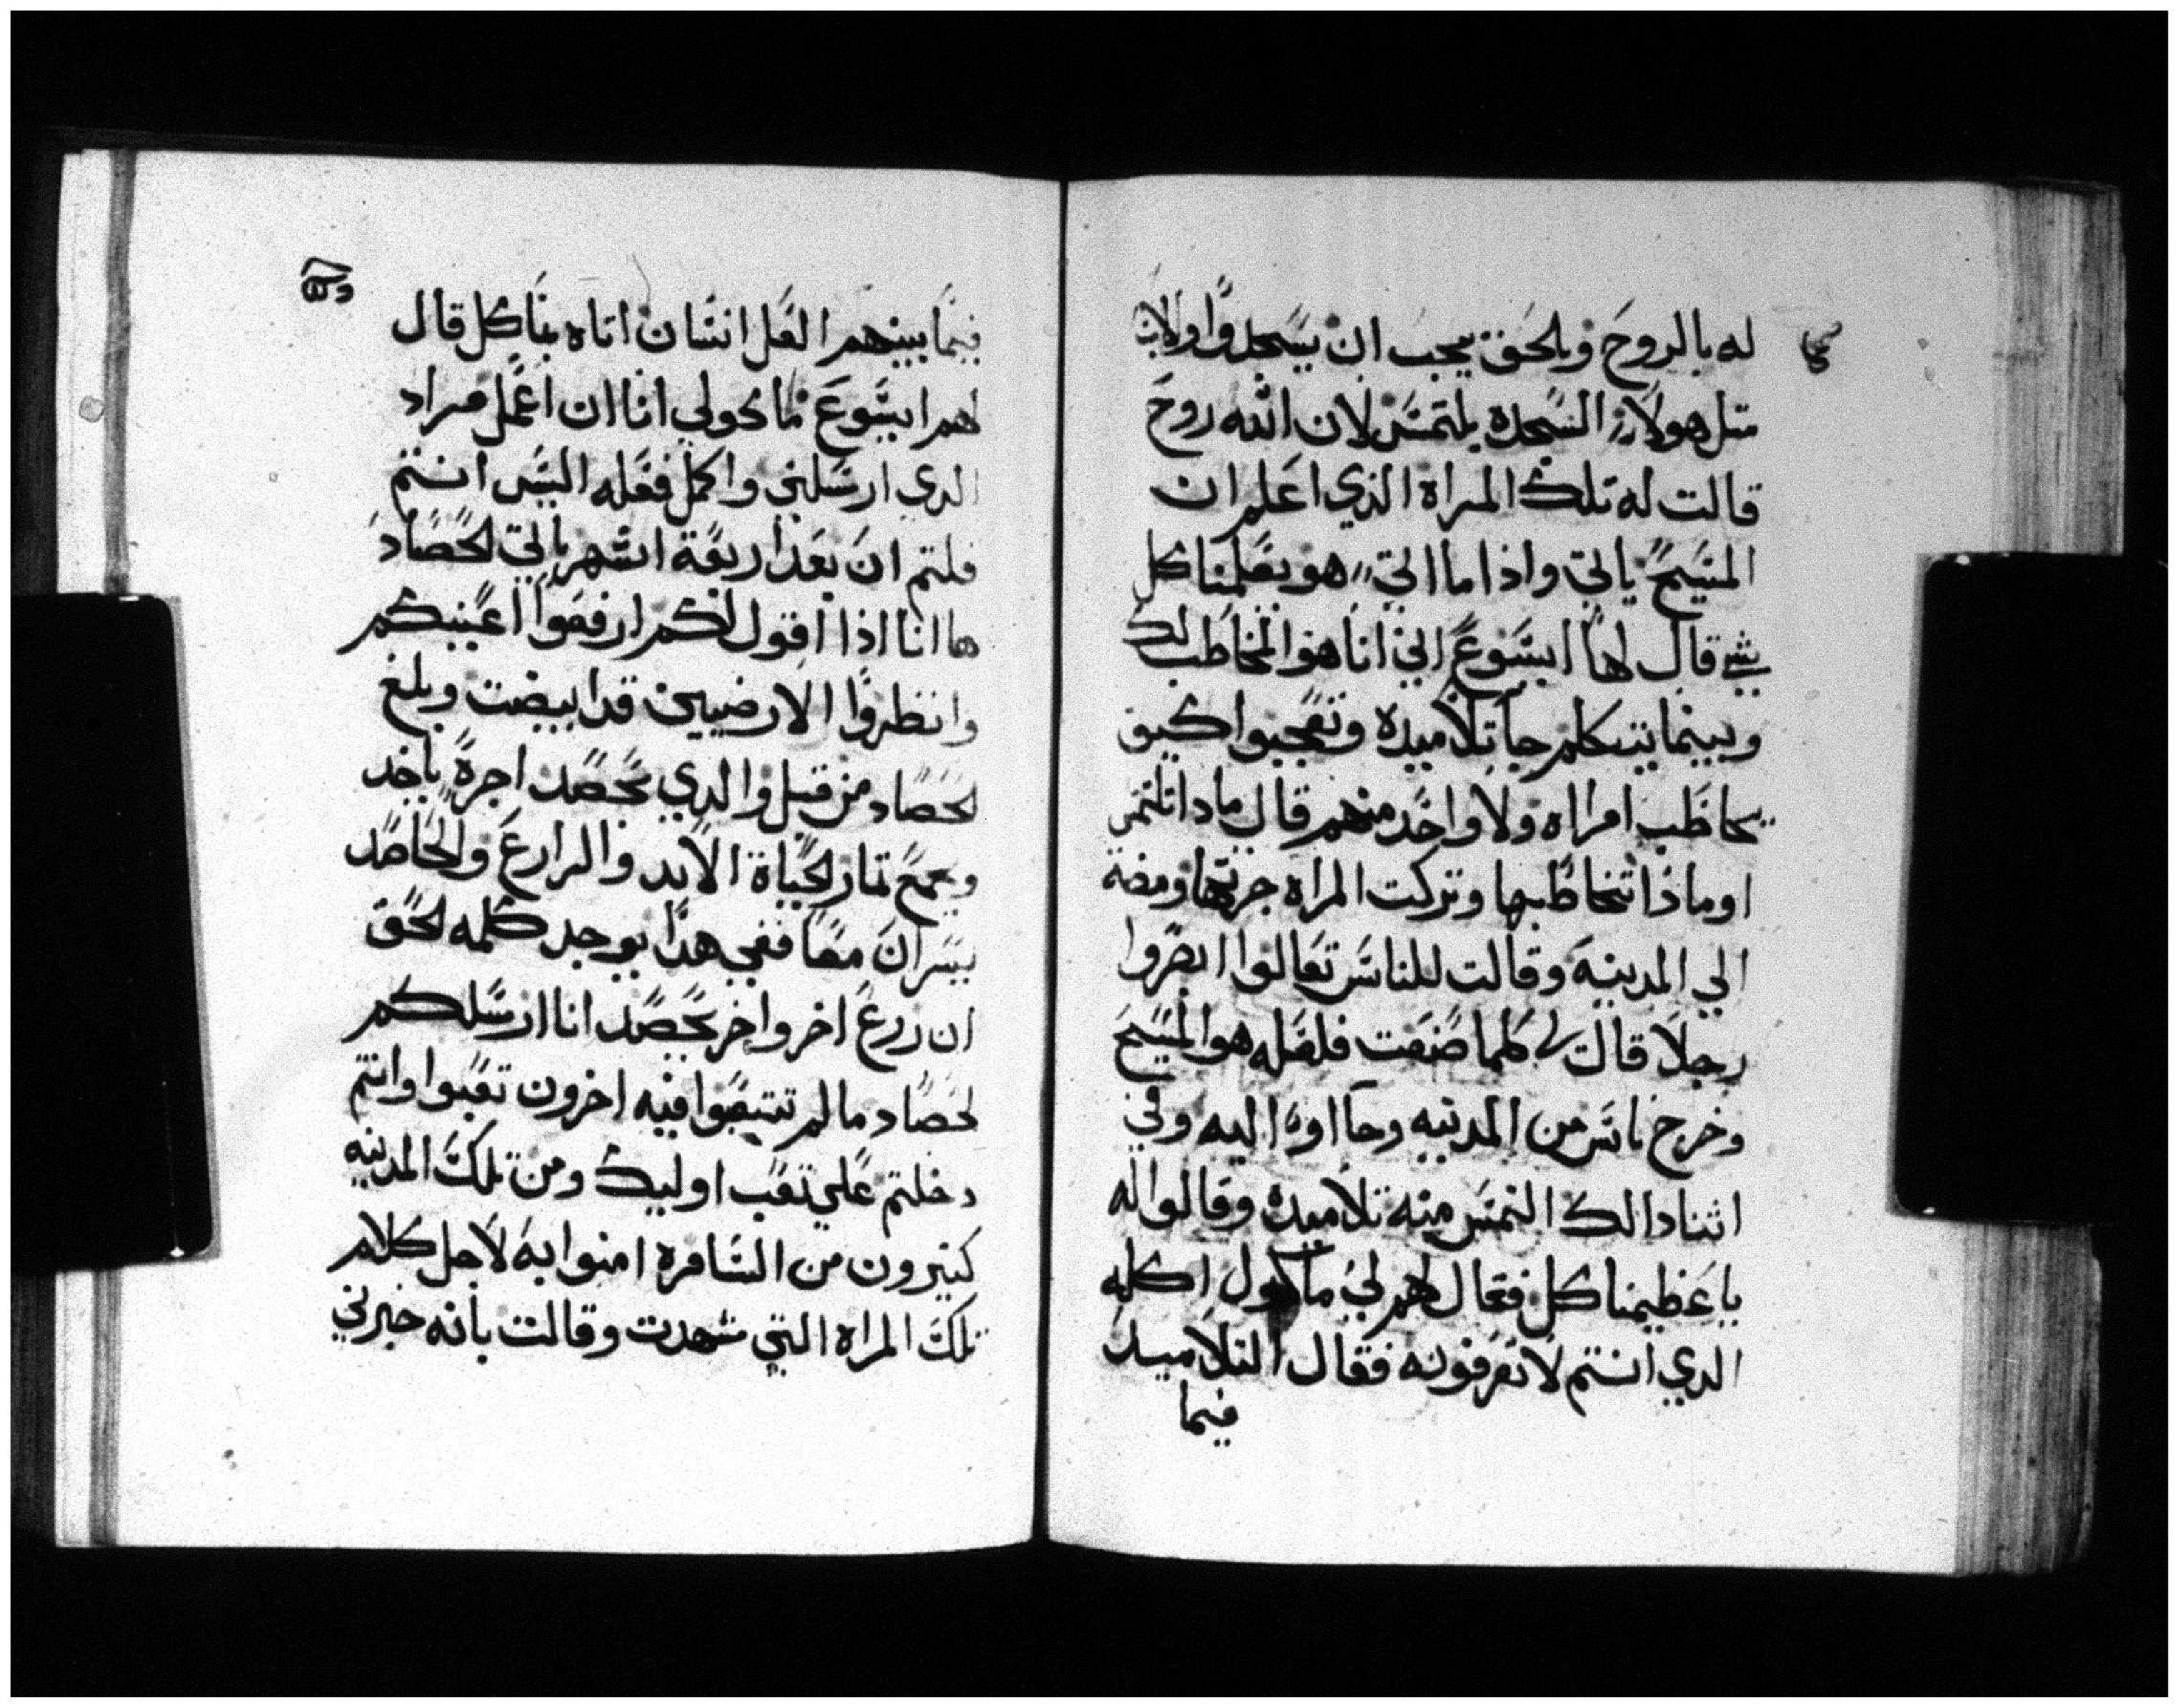 له بالروح وبالحق يجب ان يسجدوا ولاب
متل هولاء السجده يلتمس لان الله روح
قالت له تلك المراة الذي اعلم ان
المسيح ياتي واذا ما اتي هو يعلمنا كل
شي قال لها ايسوع اني انا هو المخاطب لك
وبينما يتكلم جا تلاميده وتعجبوا كيف
يخاطب امراه ولا واحد منهم قال مادا تلتمس
او ماذا تخاطبها وتركت المراه جرتها ومضه
الي المدينه وقالت للناس تعالوا ابصروا
رجلا قال لي كلما صنعت فلعله هو المسيح
وخرج ناس من المدينه وجااوا اليه وفي
اثنا دالك التمس منه تلاميده وقالوا له
يا عظيمنا كل فقال لهم لي ماكول اكله
الدي انتم لا تعرفونه فقال التلاميد
فيما
فيما بينهم العل انسان اتاه بناكل قال
لهم ايسوع ماكولي انا ان اعمل مراد
الدي ارسلني واكمل فعله اليس انتم
قلتم ان بعد اربعة اشهر ياتي الحصاد
ها انا اذا اقول لكم ارفعوا اعينكم
وانظروا الارضيين قد ابيضت وبلغ
لحصاد من قبل والدي يحصد اجرة ياخد
ويجمع تمار لحياة الابد والزارع والحاصد
يسران معا ففي هدا يوجد كلمه لحق
ان زرع اخر واخر يحصد انا ارسلكم
لحصاد ما لم تتعبوا فيه اخرون تعبوا وانتم
دخلتم علي تعب اوليك ومن تلك المدينه
كتيرون من السامره امنوا به لاجل كلام
تلك المراه التي شهدت وقالت بانه خبرني